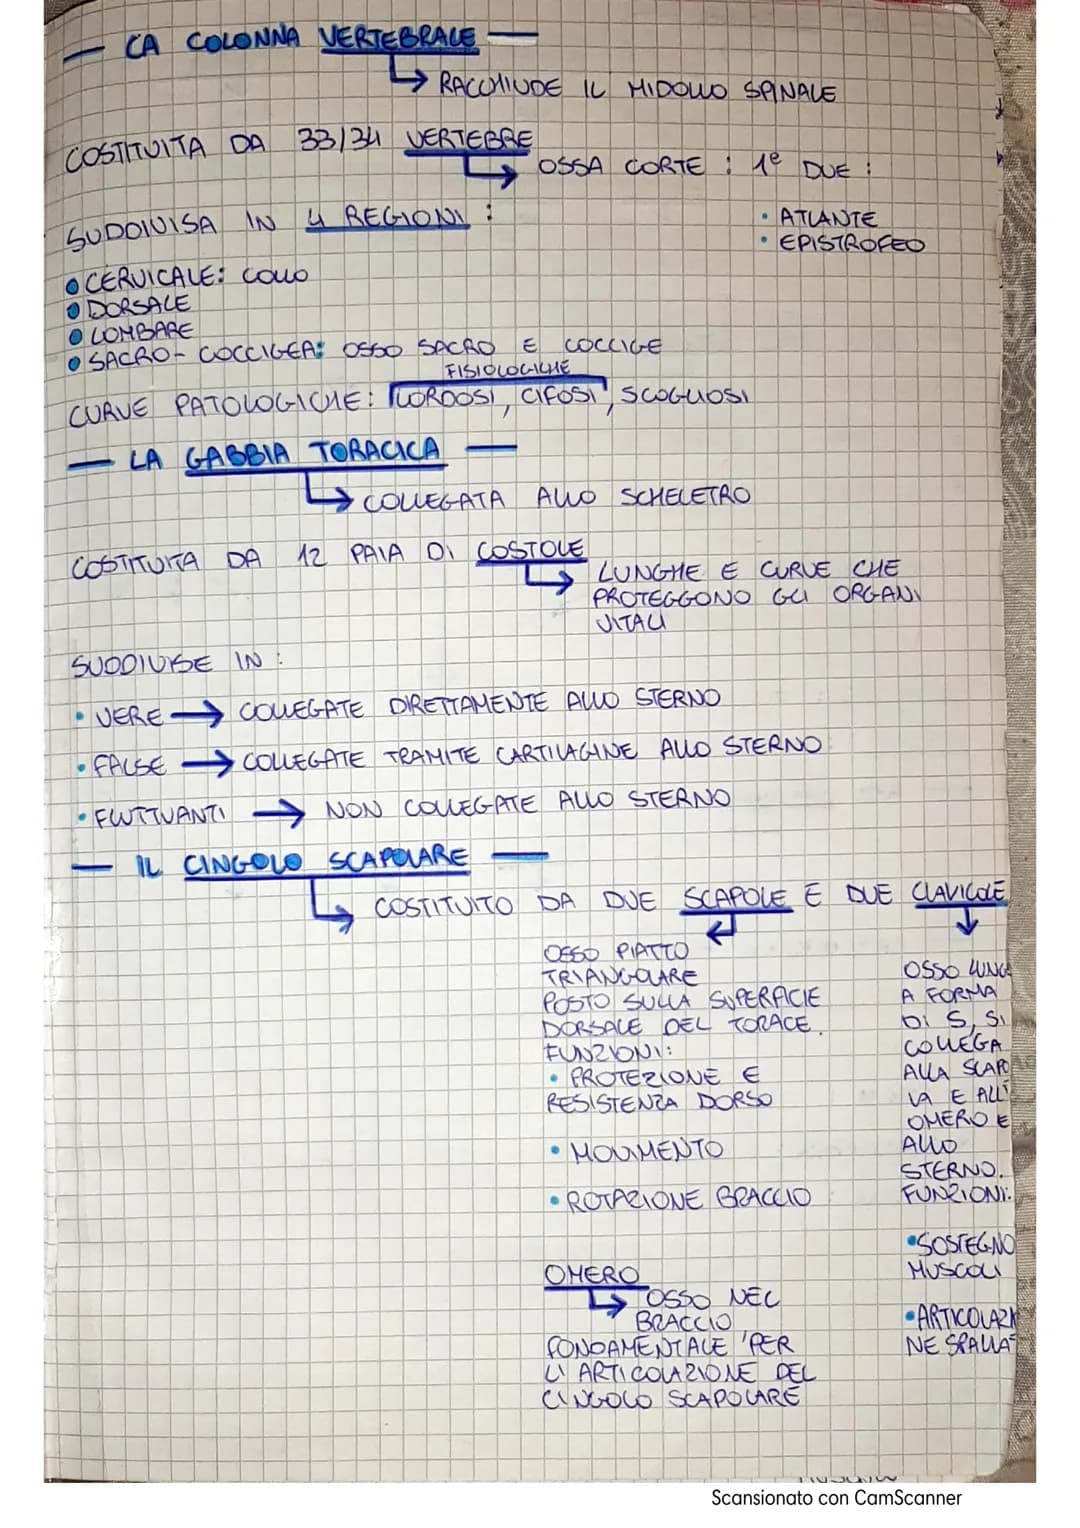 LA COLONNA VERTEBRALE
RACCHIUDE IL MIDOLLO SPINALE
COSTITUITA DA 33/34 VERTEBRE
OSSA CORTE : 1e DUE :
• ATLANTE
• EPISTROFEO
SUDDIVISA IN 4 REGIONI :
• CERVICALE: COLLO
• DORSALE
• LOMBARE
• SACRO-COCCIGEA: OSSO SACRO E COCCIGE
FISIOLOGICHE
CURVE PATOLOGICHE: LORDOSI, CIFOSI, SCOGLIOSI
LA GABBIA TORACICA
COLLEGATA ALLO SCHELETRO
COSTITUITA DA 12 PAIA DI COSTOLE
LUNGHE E CURVE CHE
PROTEGGONO GLI ORGANI
VITALI
SUDDIVISE IN :
• VERE → COLLEGATE DIRETTAMENTE ALLO STERNO
• FALSE → COLLEGATE TRAMITE CARTILAGINE ALLO STERNO
• FLUTTUANTI → NON COLLEGATE ALLO STERNO
IL CINGOLO SCAPOLARE
COSTITUITO DA DUE SCAPOLE E DUE CLAVICOLE
OSSO PIATTO
TRIANGOLARE
POSTO SULLA SUPERFICIE
DORSALE DEL TORACE.
FUNZIONI:
• PROTEZIONE E
RESISTENZA DORSO
• MOVIMENTO
• ROTAZIONE BRACCIO
OSSO LUNGO
A FORMA
DI S, SI
COLLEGA
ALLA SCAPO
LA E ALL'
OMERO E
ALLO
STERNO.
FUNZIONI:
• SOSTEGNO
MUSCOLI
• ARTICOLAZIO
NE SPALLA
OMERO
OSSO NEL
BRACCIO
FONDAMENTALE PER
L'ARTICOLAZIONE DEL
CINGOLO SCAPOLARE
Scansionato con CamScanner